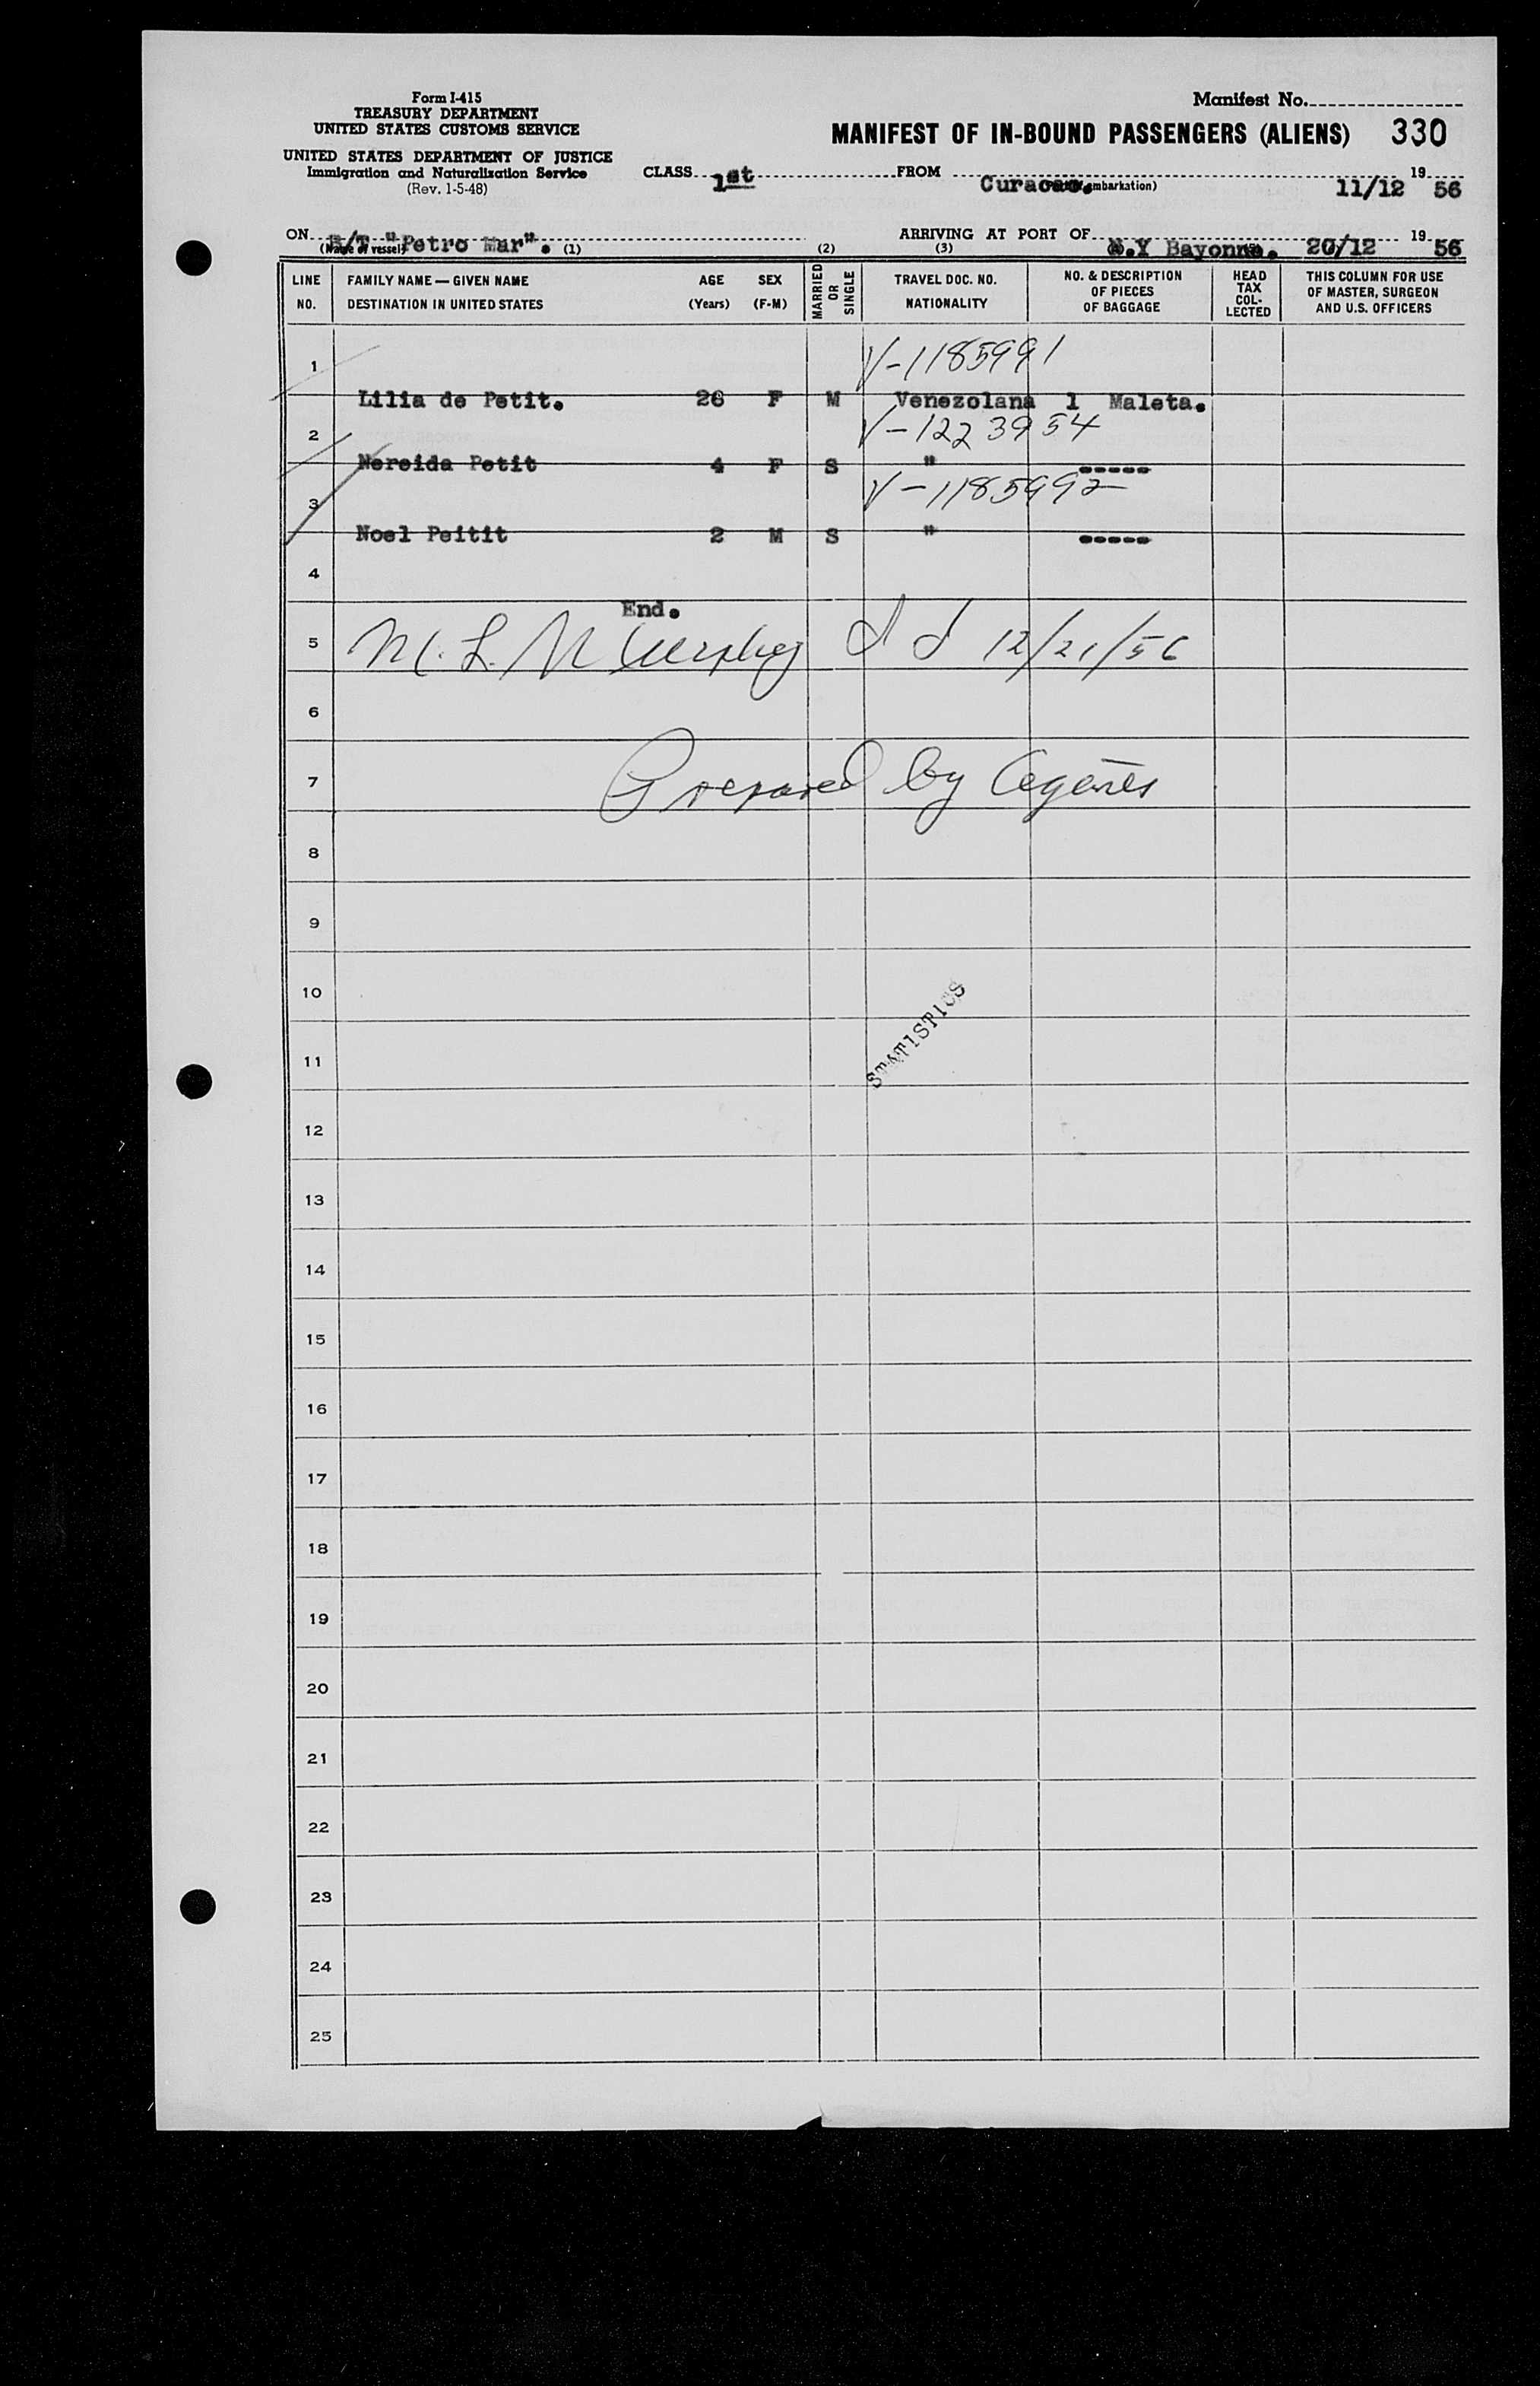 Form I-415
TREASURY DEPARTMENT
UNITED STATES CUSTOMS SERVICE
UNITED STATES DEPARTMENT OF JUSTICE
Immigration and Naturalization Service
(Rev. 1-5-48)
Manifest No.
MANIFEST OF IN-BOUND PASSENGERS (ALIENS) 330
CLASS 1st FROM Curacao. 11/12 19 56
ON "Petro Mar". ARRIVING AT PORT OF N.Y Bayonne. 20/12 19 56
(Name of vessel) (1) (2) (3)
LINE NO. FAMILY NAME — GIVEN NAME DESTINATION IN UNITED STATES AGE (Years) SEX (F-M) MARRIED OR SINGLE TRAVEL DOC. NO. NATIONALITY NO. & DESCRIPTION OF PIECES OF BAGGAGE HEAD TAX COL- LECTED THIS COLUMN FOR USE OF MASTER, SURGEON AND U.S. OFFICERS
1 V-1185991
Lilia de Petit. 26 F M Venezolana 1 Maleta.
2 V-1223954
Nereida Petit 4 F S " -----
3 V-1185992
Noel Peitit 2 M S " -----
4
End.
5 12/21/56
6
7 Prepared by Agents
8
9
10
STATISTICS
11
12
13
14
15
16
17
18
19
20
21
22
23
24
25